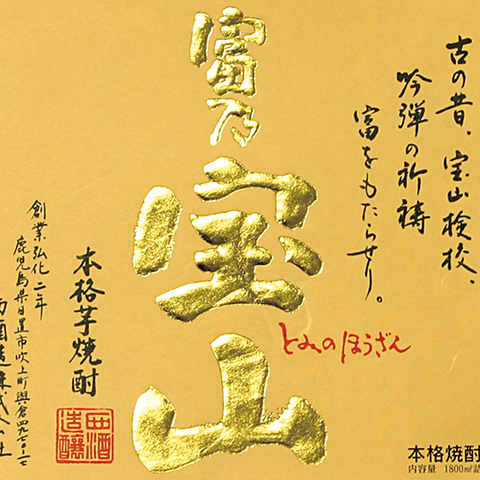 古の昔、宝山検校、
吟弾の祈祷
富をもたらせり。
富乃宝山
とみのほうざん
本格芋焼酎
創業弘化二年
鹿児島県日置市吹上町與倉四九七〇-一七
西酒造株式会社
西酒
造醸
本格焼酎
内容量 1800ml詰